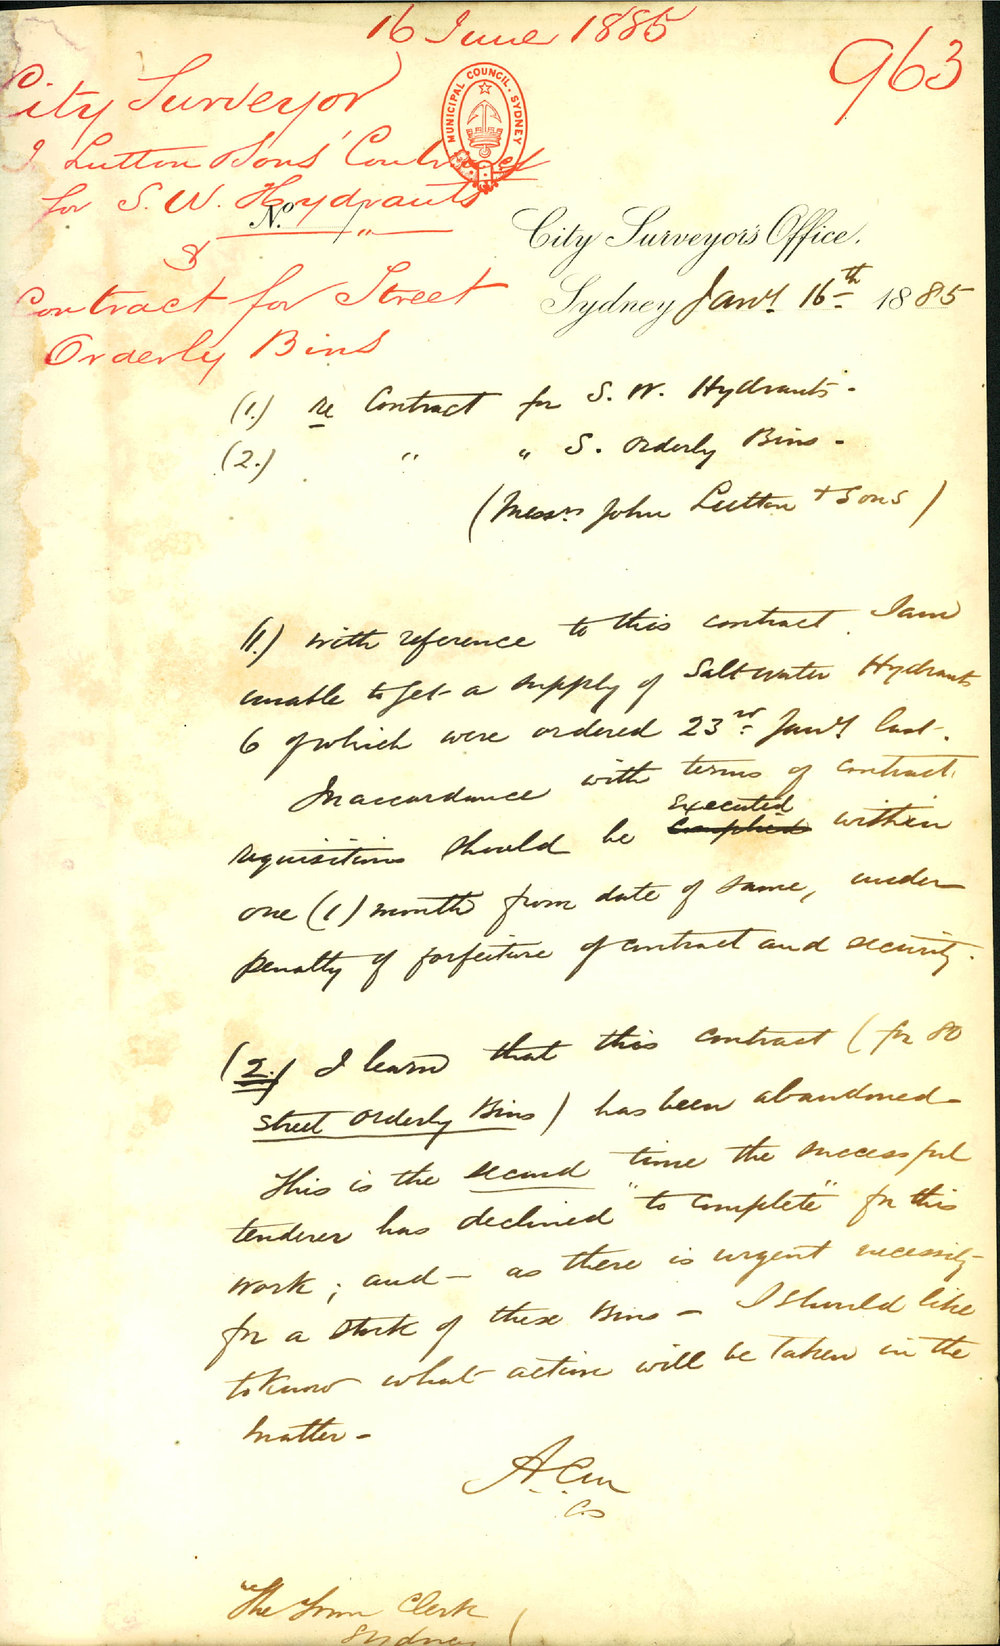 16 June 1885
963
City Surveyor
J Lutton & Sons' Contract
for S. W. Hydrants
&
Contract for Street
Orderly Bins
MUNICIPAL COUNCIL · SYDNEY
No. "
City Surveyor's Office.
Sydney 16th 1885
(1.) re Contract for S. W. Hydrants -
(2.) " " S. Orderly Bins -
(Messrs John Lutton + Sons)
(1.) with reference to this contract I am
unable to get a supply of Salt water Hydrants
6 of which were ordered 23rd last.
In accordance with terms of contract
Executed
requisitions should be within
one (1) month from date of same, under
penalty of forfeiture of contract and security.
(2.) I learn that this contract (for 80
street orderly Bins) has been abandoned -
This is the second time the successful
tenderer has declined "to complete" for this
work; and - as there is urgent necessity
for a stock of these Bins - I should like
to know what action will be taken in the
matter -
CS
The Town Clerk
Sydney